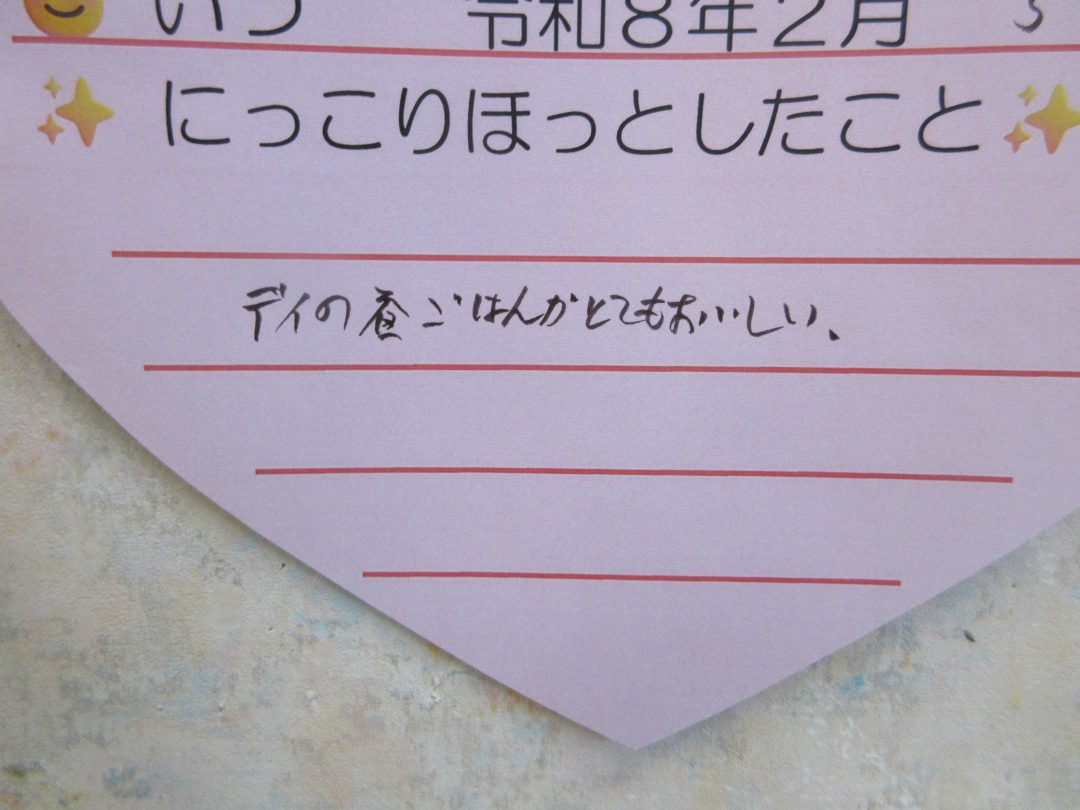 いつ 令和8年2月
にっこりほっとしたこと
デイの昼ごはんがとてもおいしい、